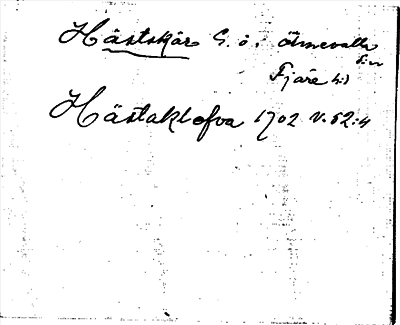 Hästskär G. ö. i Ölmevalla
s:n
Fjäre h:d
Hästaklofva 1702 V. 52:4